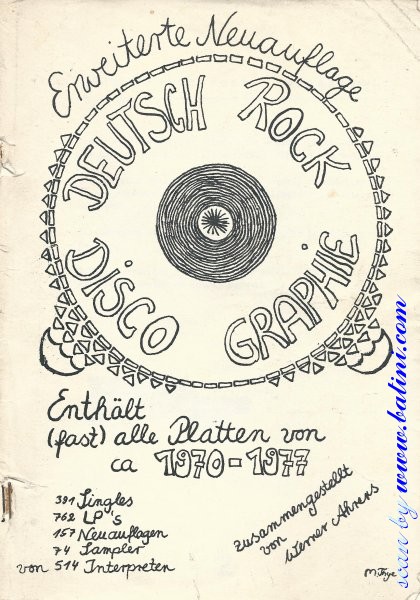 Erweiterte Neuauflage
DEUTSCH ROCK
DISCO GRAPHIE
Enthält
(fast) alle Platten von
ca 1970-1977
391 Singles
762 LP's
157 Neuauflagen
74 Sampler
von 514 Interpreten
zusammengestellt
von
Werner Ahrens
scan by www.batini.com